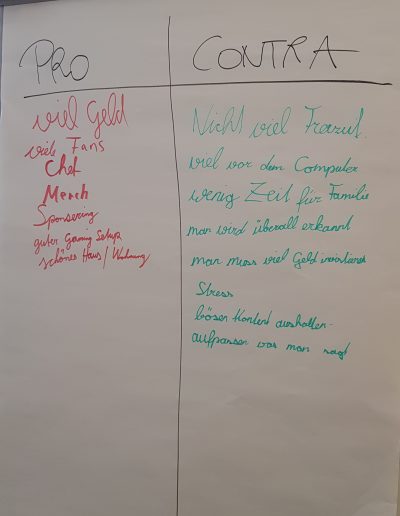 PRO
CONTRA
viel Geld
viele Fans
Chef
Merch
Sponsering
guter Gaming Setup
schönes Haus / Wohnung
Nicht viel
viel vor dem Computer
wenig Zeit für Familie
man wird überall erkannt
man muss viel Geld investieren
Stress
böser Kontent aushalten
aufpassen was man sagt